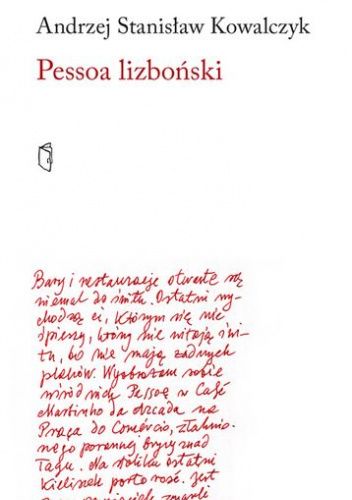 Andrzej Stanisław Kowalczyk
Pessoa lizboński
Bary i restauracje otwarte są
niemal do świtu. Ostatni wy-
chodzą ci, którym się nie
śpieszy, którzy nie witają świ-
tu, bo nie mają żadnych
planów. Wyobrażam sobie
wśród nich Pessoę w Café
Martinho da Arcada na
Praça do Comércio, złaknio-
nego porannej bryzy znad
Tagu. Na stoliku ostatni
kieliszek porto rosé. Jest